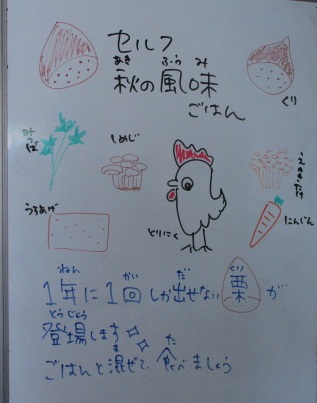 セルフ
あき ふうみ
秋の風味
ごはん
くり
みつば
しめじ
えのきたけ
うすあげ
とりにく
にんじん
ねん かい だ くり
1年に1回しか出せない 栗 が
とうじょう
登場します
ま た
ごはんと混ぜて、食べましょう